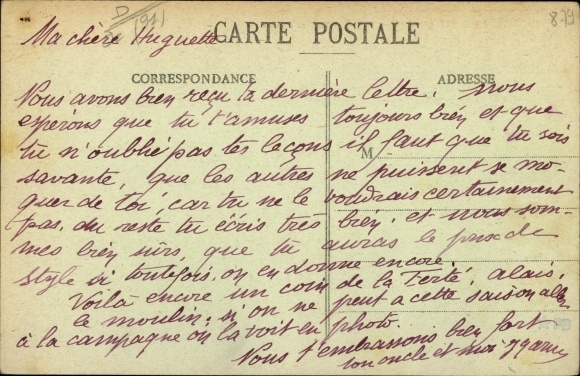 D 1911
879
Ma chère Huguette
CARTE POSTALE
CORRESPONDANCE
ADRESSE
M
Nous avons bien reçu ta dernière lettre. nous
espérons que tu t'amuses toujours bien et que
tu n'oublie pas tes leçons il faut que tu sois
savante, que les autres ne puissent se mo-
quer de toi, car tu ne le voudrais certainement
pas. du reste tu écris très bien. et nous som-
mes bien sûrs, que tu auras le prix de
style si toutefois, on en donne encore.
Voilà encore un coin de la Ferté, Alais.
le moulin. si on ne peut a cette saison aller
à la campagne on la voit en photo.
Nous t'embrassons bien fort
ton oncle et moi